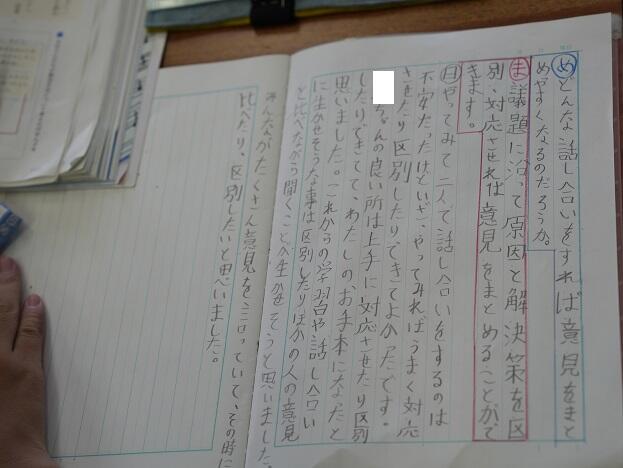 めどんな話し合いをすれば意見をまと
めやすくなるのだろうか。
ま議題に沿って原因と解決策を区
別、対応させれば意見をまとめることがで
きます。
自やってみて二人で話し合いをするのは
不安だったけどいざ、やってみればうまく対応
させたり区別したりできてよかったです。
ちゃんの良い所は上手に対応させたり区別
したりできてて、わたしのお手本になったと
思いました。これからの学習や話し合い
に生かせそうな事は区別したりほかの人の意見
と比べながら聞くことへ生かせそうと思いました。
みんながたくさん意見を言っていて、その時に
比べたり、区別したいと思いました。